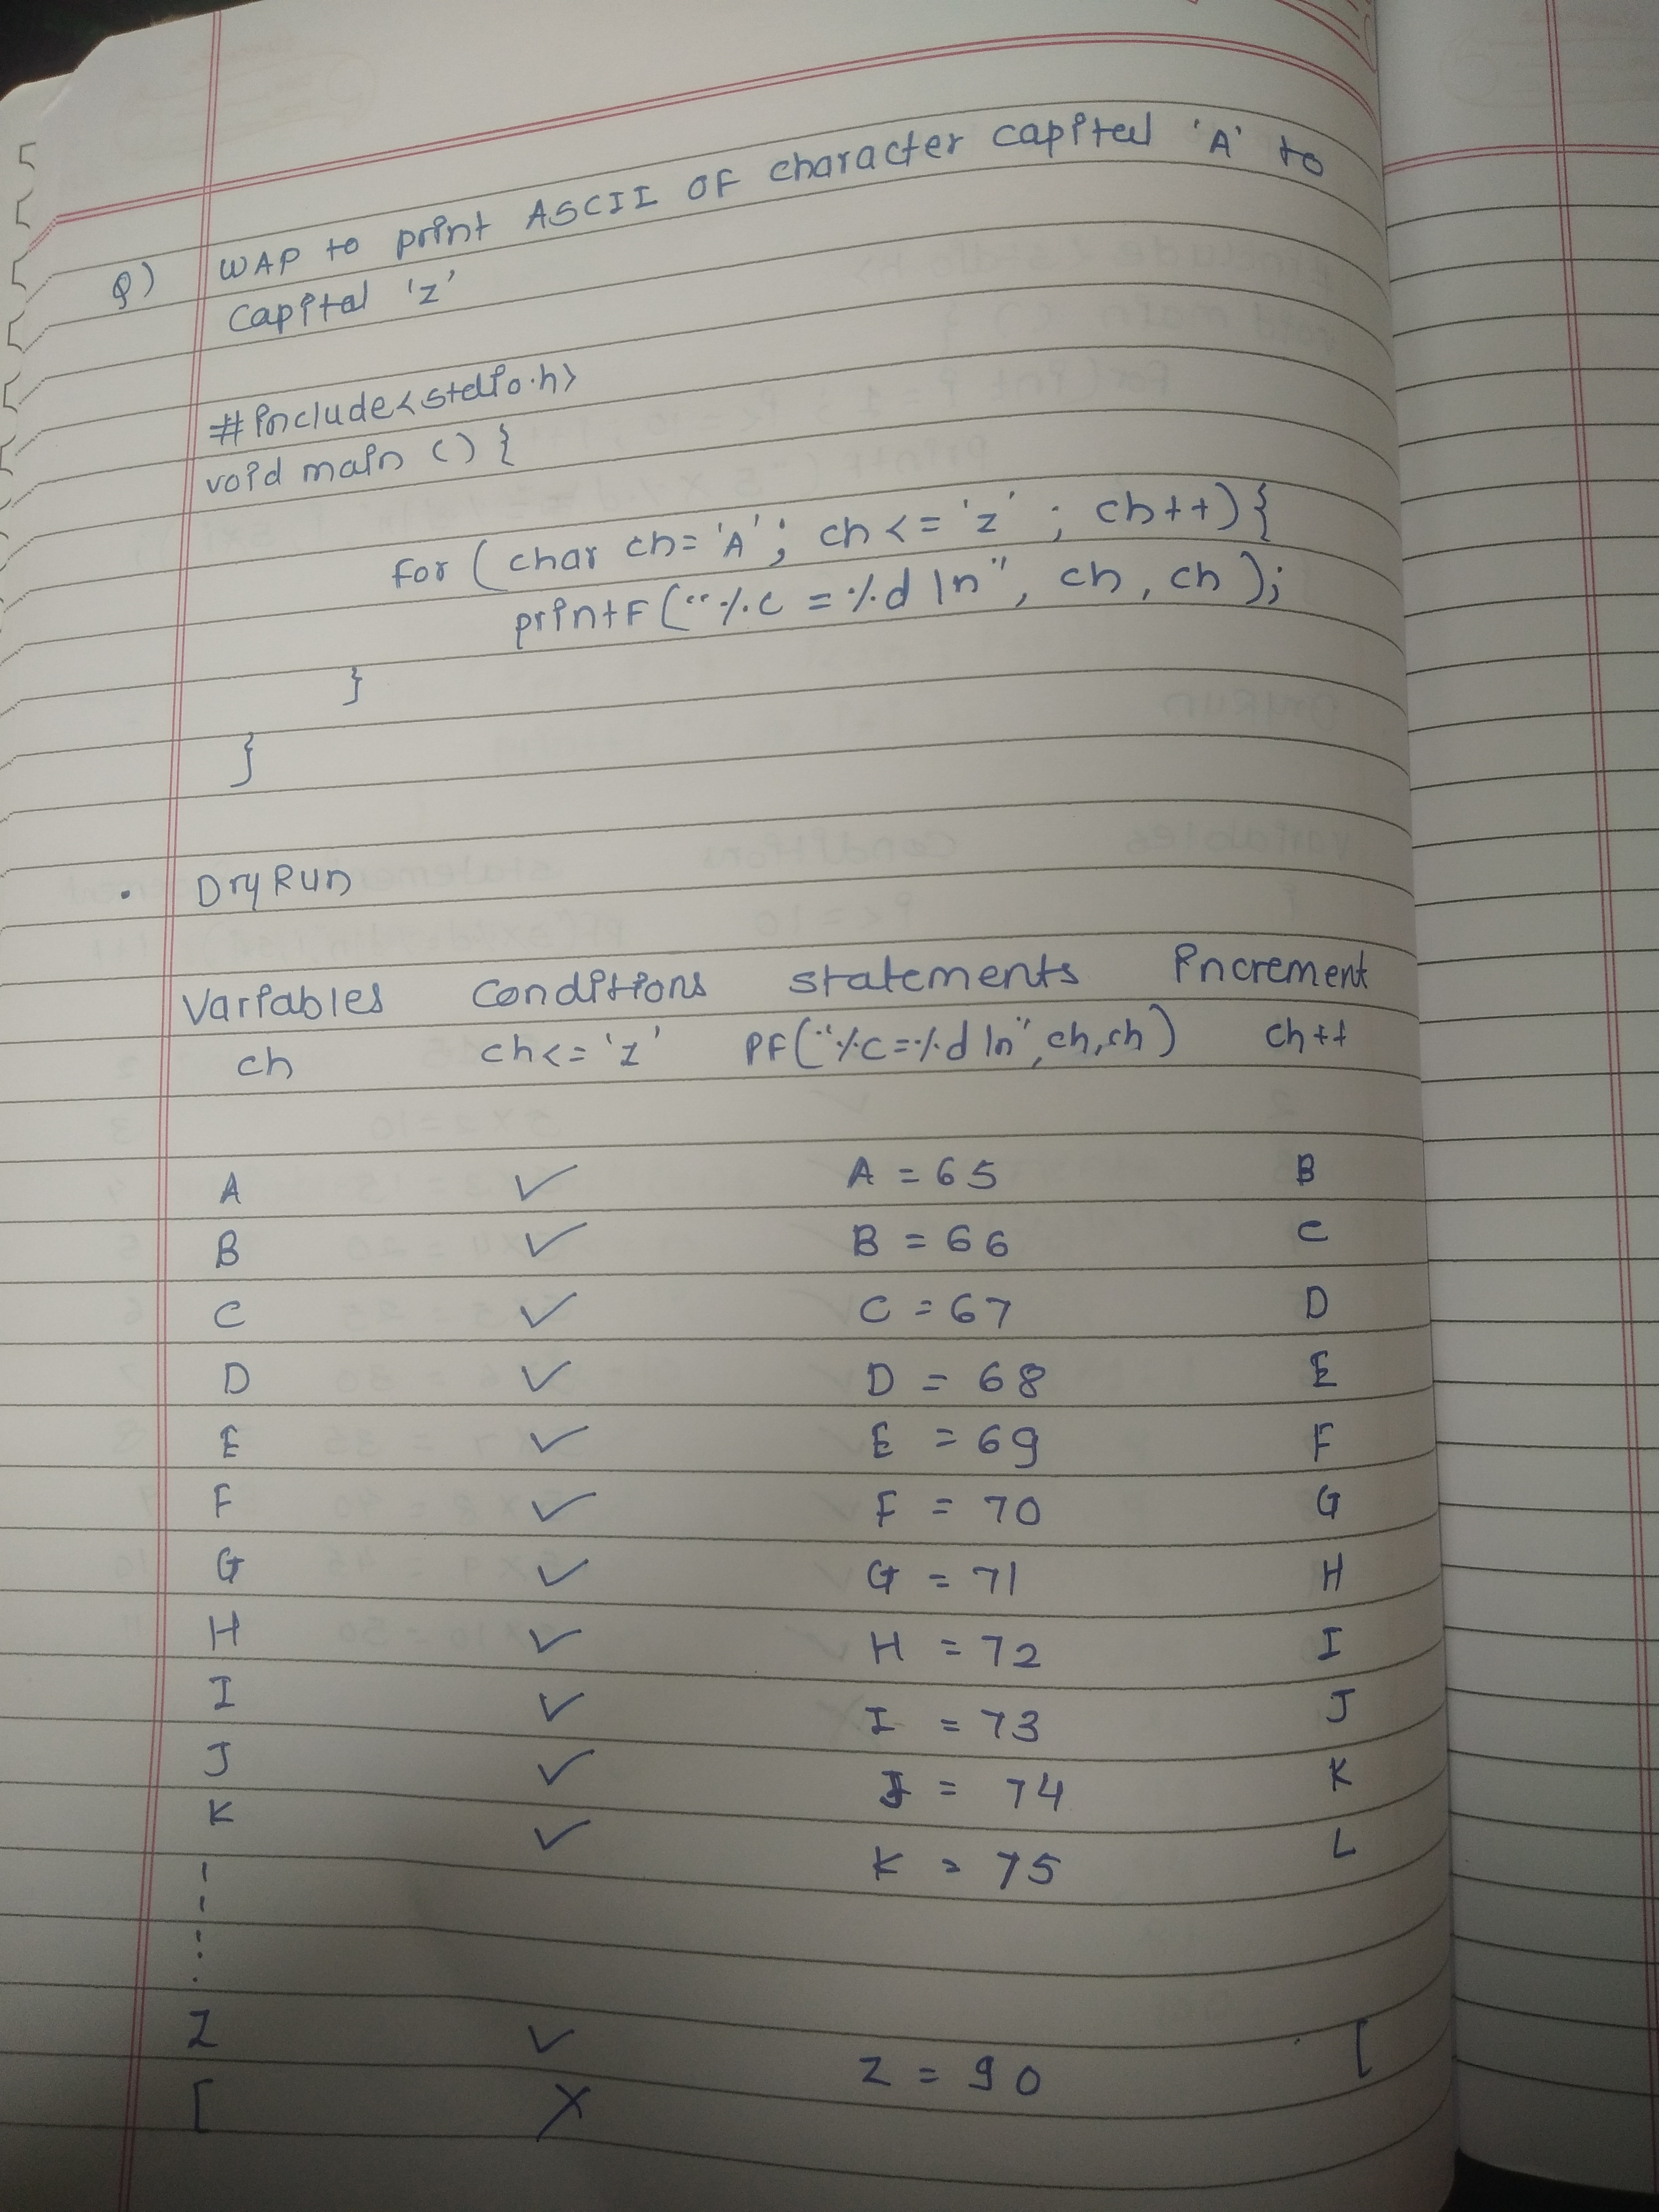 Q) WAP to print ASCII OF character capital 'A' to
capital 'z'
#include<stdio.h>
void main () {
for ( char ch= 'A' ; ch <= 'z' ; ch++) {
printF ("%c = %d \n", ch , ch );
}
}
. Dry Run
Variables Conditions statements increment
ch ch<= 'z' PF("%c=%d \n", ch, ch) ch++
A ✓ A = 65 B
B ✓ B = 66 C
C ✓ C = 67 D
D ✓ D = 68 E
E ✓ E = 69 F
F ✓ F = 70 G
G ✓ G = 71 H
H ✓ H = 72 I
I ✓ I = 73 J
J ✓ J = 74 K
K ✓ K = 75 L
Z ✓ Z = 90 [
[ X